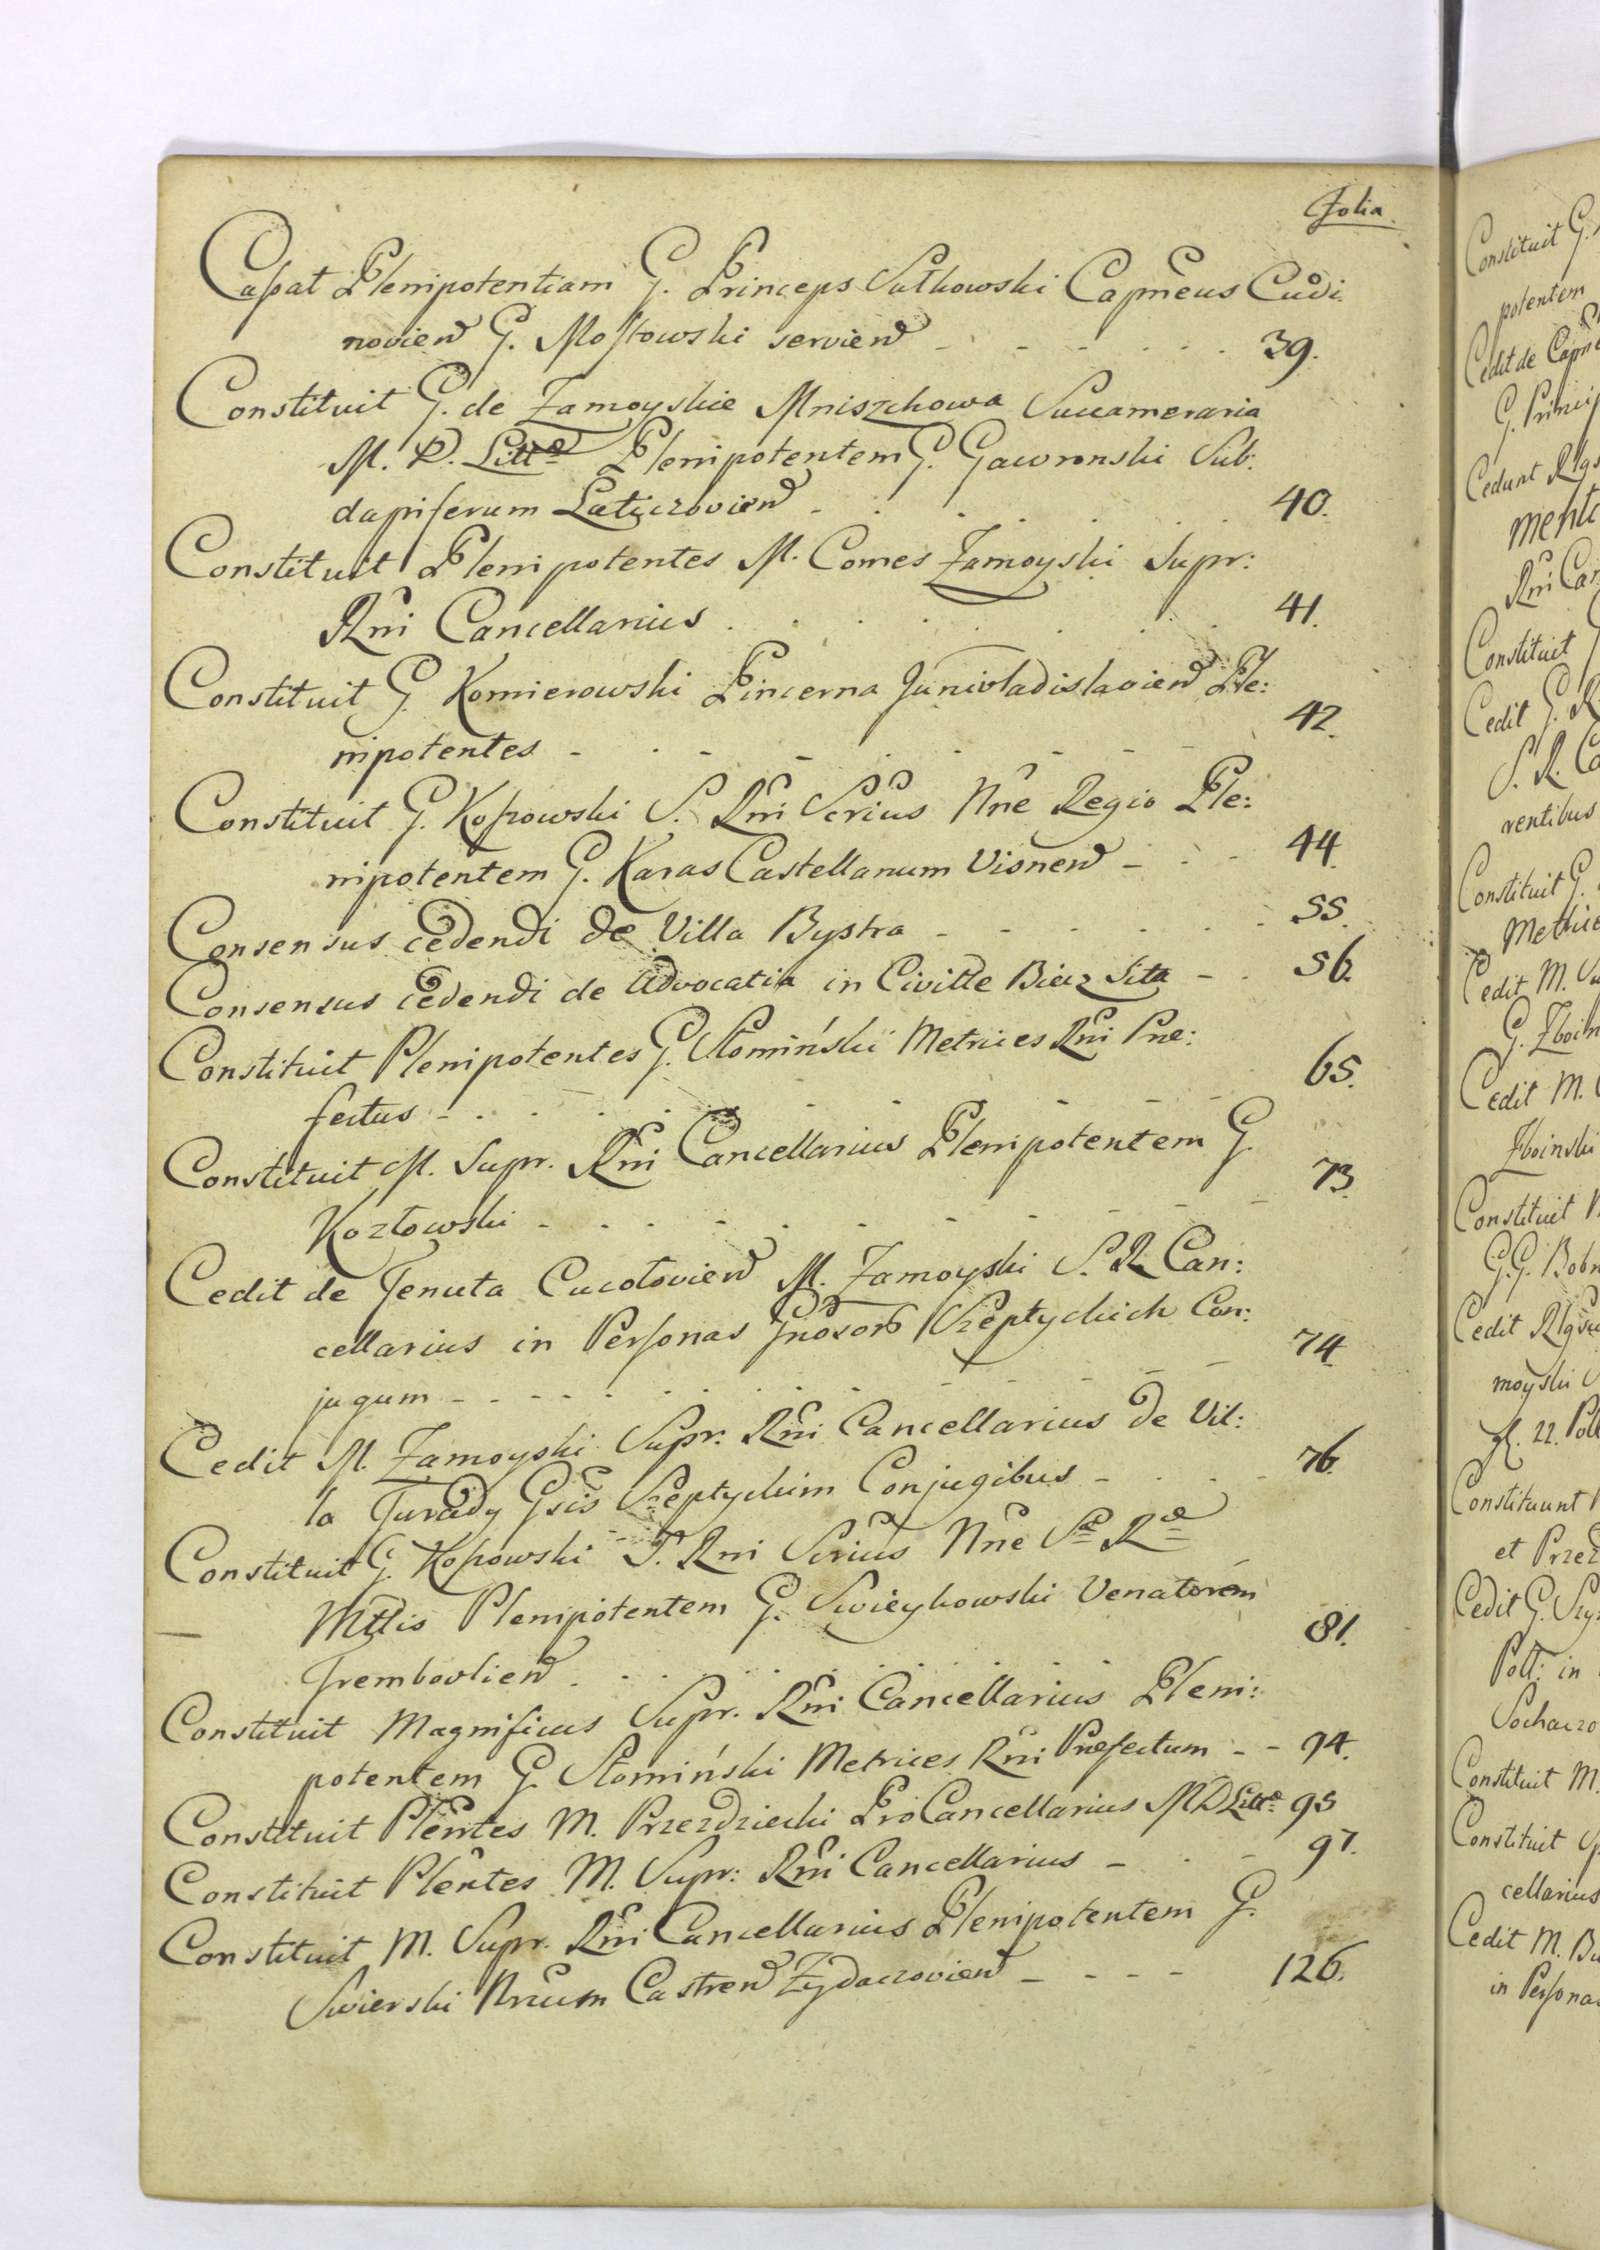 Folia.
Cassat Plenipotentiam G. Princeps Sułkowski Capneus Cudi
novien G. Mostowski servien - - - - - 39.
Constituit G. de Zamoyskie Mniszchowa Succameraria
M. D. Litt Plenipotentem G. Gawronski Sub:
dapiferum Laticzovien - . . . . 40.
Constituit Plenipotentes M. Comes Zamoyski Supr:
Rni Cancellarius . . . . . . 41.
Constituit G. Komierowski Pincerna Junivladislavien Ple:
nipotentes - . - - . . - - - 42.
Constituit G. Kossowski S. Rni Scrius Nne Regio Ple:
nipotentem G. Karas Castellanum Visnen - . - 44.
Consensus cedendi de Villa Bystra - - - - - 55.
Consensus cedendi de Advocatia in Civitte Biecz Sita - . 56.
Constituit Plenipotentes G. Słomiński Metrices Rni Prae:
fectus - . . . . . - - - - - 65.
Constituit M. Supr. Rni Cancellarius Plenipotentem G.
Kozłowski - . . . - . - - - - - 73.
Cedit de Tenuta Cucołovien M. Zamoyski S. R. Can:
cellarius in Personas Szeptychich Con:
jugum - - - - . . . . - - - - 74.
Cedit M. Zamoyski Supr. Rni Cancellarius de Vil:
la Turady Gsis Szeptychim Conjugibus - . . . - 76.
Constituit G. Kossowski S. Rni Scrius Nne S R
Mttis Plenipotentem G. Swieykowski Venatorem
Trembovlien . . . . . . . . . 81.
Constituit Magnificus Supr. Rni Cancellarius Pleni:
potentem G. Słomiński Metrices Rni Praefectum - - 94.
Constituit Plentes M. Przezdziecki ProCancellarius M D Litt 95
Constituit Plentes M. Supr: Rni Cancellarius - . - 97.
Constituit M. Supr. Rni Cancellarius Plenipotentem G.
Swierski Nrium Castren Zydaczovien - - - - 126.
Constituit G.
potentem
Cedit de Capne
G. Princip
Cedunt
Rni Can
Constituit
Cedit G. R.
S. R. Ca
Constituit G.
Cedit M. Su
G. Zboin
Cedit M.
Zboinski
Constituit
G. G. Bobr
Cedit
moyski
22. Poll
Constituunt
et Przez
Cedit G. Szy
Poll: in
Sochaczo
Constituit M.
Constituit
cellarius
Cedit M. Bu
in Persona